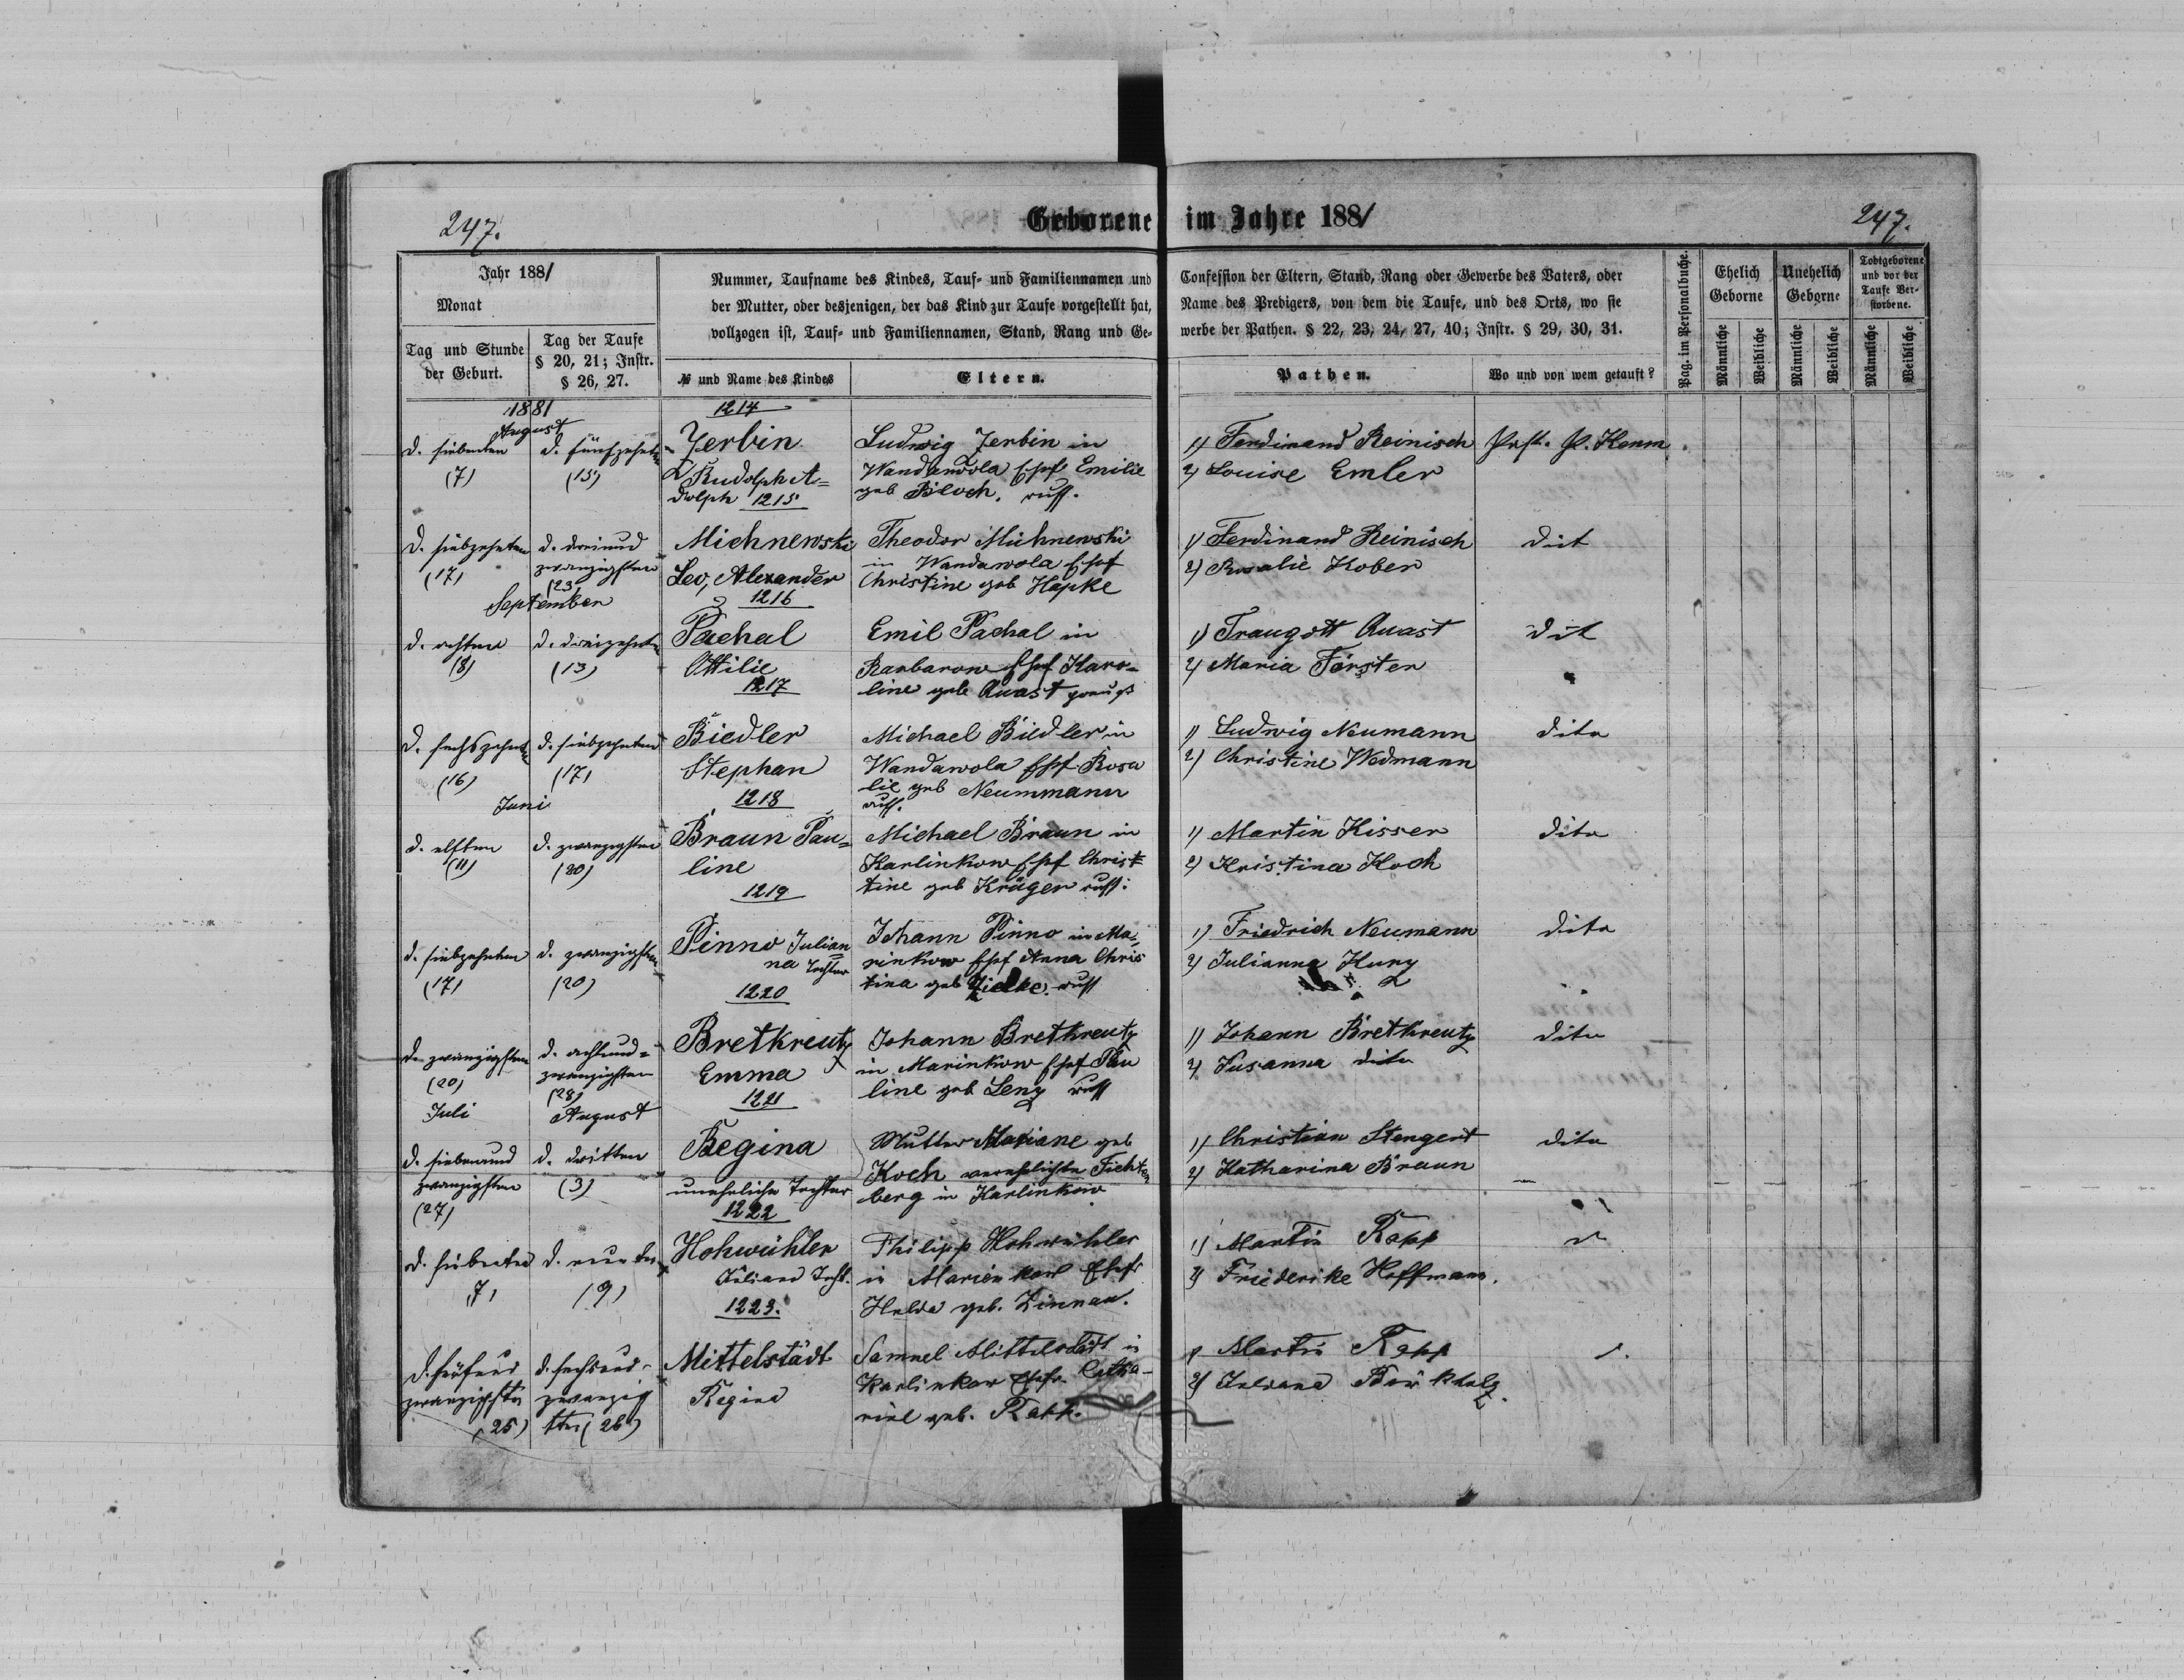 247.
Geborene im Jahre 1881
247.
Jahr 1881
Monat
Tag und Stunde der Geburt.
Tag der Taufe § 20, 21; Instr. § 26, 27.
Nummer, Taufname des Kindes, Tauf- und Familiennamen und
der Mutter, oder desjenigen, der das Kind zur Taufe vorgestellt hat,
vollzogen ist, Tauf- und Familiennamen, Stand, Rang und Ge-
№ und Name des Kindes
Eltern.
Confession der Eltern, Stand, Rang oder Gewerbe des Vaters, oder
Name des Predigers, von dem die Taufe, und des Orts, wo sie
werbe der Pathen. § 22, 23, 24, 27, 40; Instr. § 29, 30, 31.
Pathen.
Wo und von wem getauft?
Pag. im Personalbuche.
Ehelich Geborne
Unehelich Geborne
Todtgeborene und vor der Taufe Verstorbene.
Männliche
Weibliche
Männliche
Weibliche
Männliche
Weibliche
1881
August
1214
d. siebenten
(7)
d. fünfzehnten
(15)
Zerbin
Rudolph A=
dolph
Ludwig Zerbin in
Wandawola Ehef Emilie
geb Bloch. russ.
1) Ferdinand Reinisch
2) Louise Emler
Past. P. Kenm
1215
d. siebzehnten
(17)
d. dreiund
zwanzigsten
(23)
Michnewski
Leo, Alexander
Theodor Michnewski
in Wandawola Ehef
Christine geb Hapke
1) Ferdinand Reinisch
2) Rosalie Kober
dit
September
1216
d. achten
(8)
d. dreizehnten
(13)
Pachal
Ottilie
Emil Pachal in
Barbarow Ehef Karo-
line geb Quast preuß
1) Traugott Quast
2) Maria Förster
dit
1217
d. sechszehnten
(16)
d. siebzehnten
(17)
Biedler
Stephan
Michael Biedler in
Wandawola Ehef Rosa
lie geb Neummann
russ.
1) Ludwig Neumann
2) Christine Wedmann
dito
Juni
1218
d. elften
(11)
d. zwanzigsten
(20)
Braun Pau=
line
Michael Braun in
Karlinkow Ehef Chris=
tine geb Krüger russ:
1) Martin Kisser
2) Kristina Koch
dito
1219
d. siebzehnten
(17)
d. zwanzigsten
(20)
Pinno Julian
na Tochter
Johann Pinno in Ma=
rinkow Ehef Anna Chris
tina geb Zielke. russ
1) Friedrich Neumann
2) Julianna Kunz
dito
1220
d. zwanzigsten
(20)
d. achtund=
zwanzigsten
(28)
Bretkreutz
Emma
Johann Bretkreutz
in Marinkow Ehef Pau
line geb Lenz russ
1) Johann Bretkreutz
2) Susanna dito
dito
Juli
August
1221
d. siebenund
zwanzigsten
(27)
d. dritten
(3)
Regina
uneheliche Tochter
Mutter Mariane geb
Koch verehlichte Fichten
berg in Karlinkow
1) Christian Stengert
2) Katharina Braun
dito
1222
d. siebenten
7)
d. neunten
(9)
Hohwühler
Juliane Tocht.
Philipp Hohwühler
in Marienkow Ehefr
Hulda geb. Zinnau.
1) Martin Rapp
2) Friederike Hoffmann.
1223.
d. fünfund
zwanzigsten
(25)
d. sechsund-
zwanzig
sten (26)
Mittelstädt
Regine
Samuel Mittelstädt in
Karlinkow Ehefr. Catha-
rine geb. Rapp.
1) Martin Rapp
2) Juliane Birkholz.